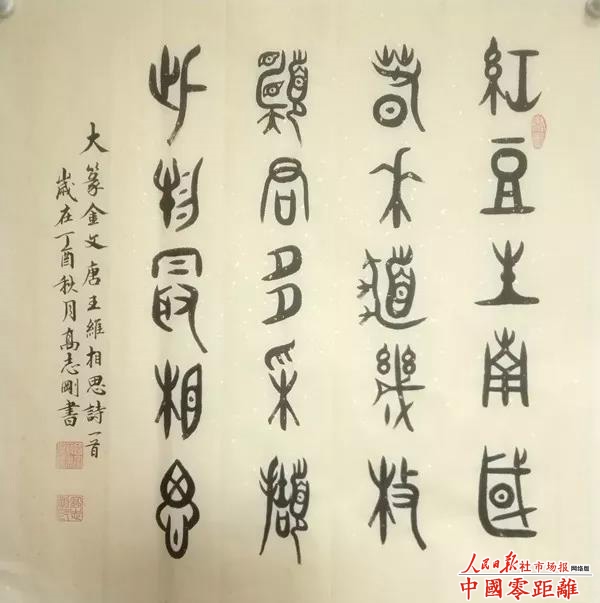 紅豆生南國
春來道幾枝
願君多采擷
此物最相思
大篆金文唐王維相思詩一首
歲在丁酉秋月高志剛書
人民日报社市场报网络版
中國零距離